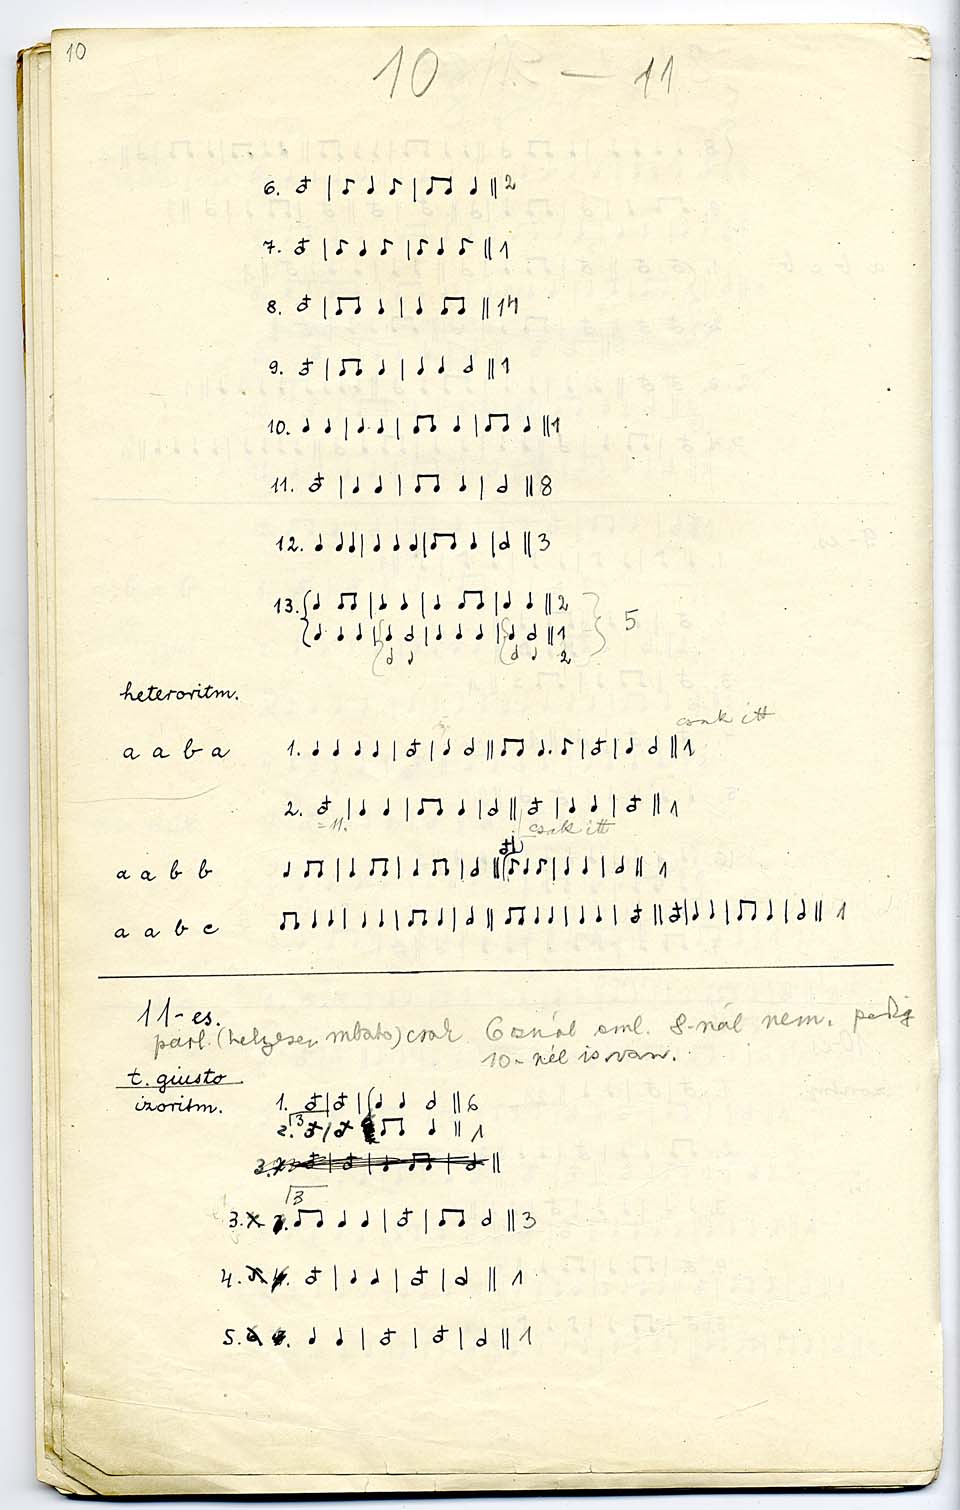 10
10 — 11
6. 𝅗𝅥 | ♪ ♩ ♪ | ♫ ♩ || 2
7. 𝅗𝅥 | ♪ ♩ ♪ | ♪ ♩ ♪ || 1
8. 𝅗𝅥 | ♫ ♩ | ♩ ♫ || 14
9. 𝅗𝅥 | ♫ ♩ | ♩ ♩ 𝅗𝅥 || 1
10. ♩ ♩ | ♩ ♩ | ♫ ♩ | ♫ ♩ || 1
11. 𝅗𝅥 | ♩ ♩ | ♫ ♩ | 𝅗𝅥 || 8
12. ♩ ♩ ♩ | ♩ ♩ ♩ | ♫ ♩ | 𝅗𝅥 || 3
13. { ♩ ♫ | ♩ ♩ | ♩ ♫ | ♩ ♩ || 2 } 5
{ ♩ ♩ ♩ | ♩ 𝅗𝅥 | ♩ ♩ ♩ | ♩ 𝅗𝅥 || 1
𝅗𝅥 ♩ 𝅗𝅥 ♩ 2
heteroritm.
csak itt
a a b a 1. ♩ ♩ ♩ ♩ | 𝅗𝅥 | ♩ 𝅗𝅥 || ♫ ♩. ♪ | 𝅗𝅥 | ♩ 𝅗𝅥 || 1
2. 𝅗𝅥 | ♩ ♩ | ♫ ♩ | 𝅗𝅥 || 𝅗𝅥 | ♩ ♩ | 𝅗𝅥 || 1
= 11. csak itt
a a b b ♩ ♫ | ♩ ♫ | ♩ ♫ | 𝅗𝅥 || ♪ ♩ ♪ | ♩ ♩ | 𝅗𝅥 || 1
a a b c ♫ ♩ ♩ | ♩ ♩ | ♫ ♩ | 𝅗𝅥 || ♫ ♩ ♩ | ♩ ♩ | 𝅗𝅥 || 𝅗𝅥 | ♩ ♩ | ♫ ♩ | 𝅗𝅥 || 1
11-es.
parl. csak 6osnál 8-nál nem, pedig
10-nél is van.
t. giusto
izoritm. 1. 𝅗𝅥 | 𝅗𝅥 | ♩ ♩ 𝅗𝅥 || 6
2. 3 𝅗𝅥 | 𝅗𝅥 ♫ ♩ || 1
3. 𝅗𝅥 | 𝅗𝅥 | ♩ ♫ | 𝅗𝅥 ||
3
3. ♫ ♩ ♩ | 𝅗𝅥 | ♫ 𝅗𝅥 || 3
4. 𝅗𝅥 | ♩ ♩ | 𝅗𝅥 | 𝅗𝅥 || 1
5. ♩ ♩ | 𝅗𝅥 | 𝅗𝅥 | 𝅗𝅥 || 1